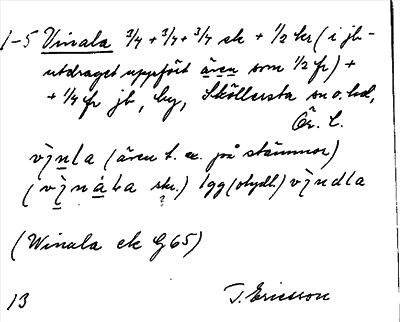 1-5 Vinala 3/4 + 3/4 + 3/4 sk + 1/2 kr (i jb-
utdraget uppfört även som 1/2 fr) +
+ 1/4 fr jb, by, Sköllersta sn o. hd,
Ör. l.
vìnla (även t. ex. på stämmor)
(vìnála sk.) lgg (otydl.) vìndla
?
(Winala ek G 65)
13 T. Ericsson